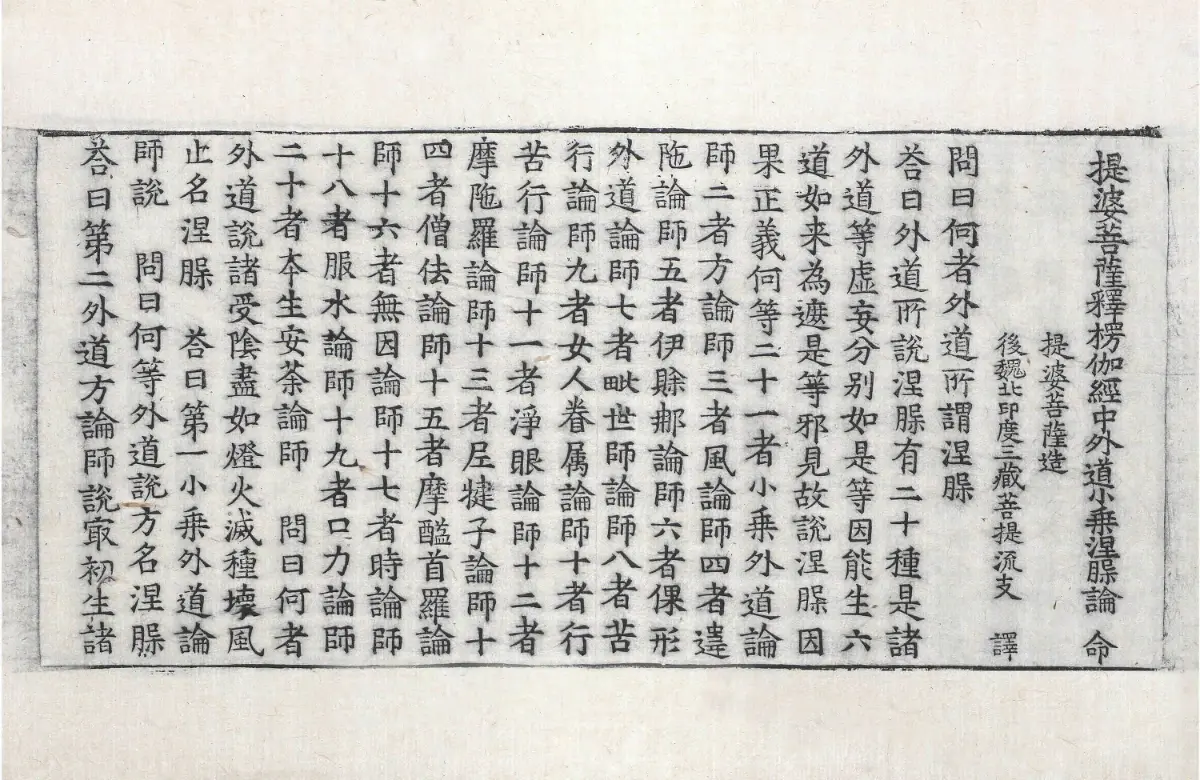 提婆菩薩釋楞伽經中外道小乗涅脲論 命
提婆菩薩造
後魏北印度三藏菩提流支 譯
問曰何者外道所謂涅脲
荅曰外道所說涅脲有二十種是諸
外道等虛妄分別如是等因能生六
道如来為遮是等邪見故說涅脲因
果正義何等二十一者小乗外道論
師二者方論師三者風論師四者違
陁論師五者伊賒郍論師六者倮形
外道論師七者毗世師論師八者苦
行論師九者女人眷属論師十者行
苦行論師十一者淨眼論師十二者
摩陁羅論師十三者尼犍子論師十
四者僧佉論師十五者摩醯首羅論
師十六者無因論師十七者時論師
十八者服水論師十九者口力論師
二十者夲生安荼論師 問曰何者
外道說諸受陰盡如燈火滅種壞風
止名涅脲 荅曰第一小乗外道論
師說 問曰何等外道說方名涅脲
荅曰第二外道方論師說㝡初生諸